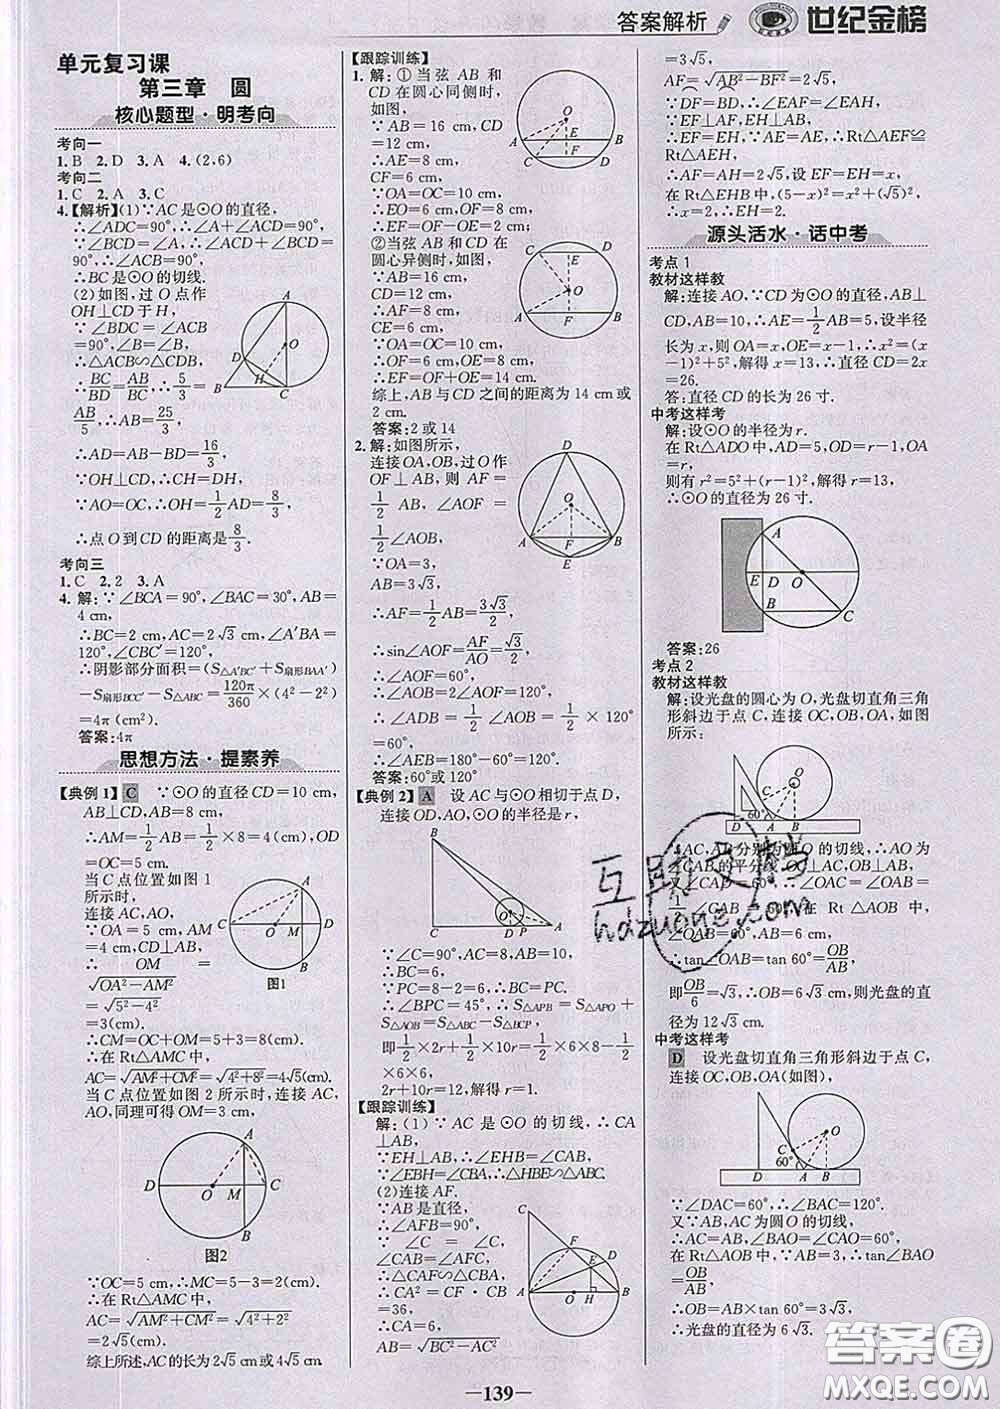 答案解析
世纪金榜
单元复习课
第三章 圆
核心题型·明考向
考向一
1.B 2.D 3.A 4.(2,6)
考向二
1.C 2.A 3.C
4.【解析】(1)∵AC是⊙O的直径,
∴∠ADC=90°,∴∠A+∠ACD=90°.
∵∠BCD=∠A,∴∠ACD+∠BCD=90°,
∴BC是⊙O的切线.
(2)如图,过O点作
OH⊥CD于H,
∵∠BDC=∠ACB
=90°,∠B=∠B,
∴△ACB∽△CDB,
∴BC/BD=AB/BC,∴5/3=
AB/5,∴AB=25/3,
∴AD=AB-BD=16/3,
∵OH⊥CD,∴CH=DH,
∵AO=OC,∴OH=1/2AD=8/3,
∴点O到CD的距离是8/3.
考向三
1.C 2.2 3.A
4.解:∵∠BCA=90°,∠BAC=30°,AB=
4 cm,
∴BC=2 cm,AC=2√3 cm,∠A′BA=
120°,∠CBC′=120°,
∴阴影部分面积=(S△A′BC′+S扇形BAA′)
-S扇形BCC′-S△ABC=120π/360×(4²-2²)
=4π(cm²).
答案:4π
思想方法·提素养
【典例1】C ∵⊙O的直径CD=10 cm,
AB⊥CD,AB=8 cm,
∴AM=1/2AB=1/2×8=4(cm),OD
=OC=5 cm.
当C点位置如图1
所示时,
连接AC,AO,
∵OA=5 cm,AM=
4 cm,CD⊥AB,
∴OM=
√(OA²-AM²)
=√(5²-4²)
=3(cm).
∴CM=OC+OM=5+3=8(cm).
∴在Rt△AMC中,
AC=√(AM²+CM²)=√(4²+8²)=4√5(cm).
当C点位置如图2所示时,连接AC,
AO,同理可得OM=3 cm,
图1
图2
∵OC=5 cm,∴MC=5-3=2(cm).
∴在Rt△AMC中,
AC=√(AM²+CM²)=√(4²+2²)
=2√5(cm).
综上所述,AC的长为2√5 cm或4√5 cm.
【跟踪训练】
1.解:①当弦AB和
CD在圆心同侧时,
如图,
∵AB=16 cm,CD
=12 cm,
∴AE=8 cm,
CF=6 cm,
∵OA=OC=10 cm,
∴EO=6 cm,OF=8 cm,
∴EF=OF-OE=2 cm;
②当弦AB和CD在
圆心异侧时,如图,
∵AB=16 cm,CD
=12 cm,
∴AF=8 cm,
CE=6 cm,
∵OA=OC=10 cm,
∴OF=6 cm,OE=8 cm,
∴EF=OF+OE=14 cm.
综上,AB与CD之间的距离为14 cm或
2 cm.
答案:2或14
2.解:如图所示,
连接OA,OB,过O作
OF⊥AB,则AF=
1/2AB,∠AOF=
1/2∠AOB,
∵OA=3,
AB=3√3,
∴AF=1/2AB=3√3/2,
∴sin∠AOF=AF/AO=√3/2,
∴∠AOF=60°,
∴∠AOB=2∠AOF=120°,
∴∠ADB=1/2∠AOB=1/2×120°
=60°,
∴∠AEB=180°-60°=120°.
答案:60°或120°
【典例2】A 设AC与⊙O相切于点D,
连接OD,AO,⊙O的半径是r,
∵∠C=90°,AC=8,AB=10,
∴BC=6,
∵PC=8-2=6,∴BC=PC.
∴∠BPC=45°,∴S△APB=S△APO+
S△AOB=S△ABC-S△BCP,
即1/2×2r+1/2×10r=1/2×6×8-1/2
×6×6,
2r+10r=12,解得r=1.
【跟踪训练】
解:(1)∵AC是⊙O的切线,∴CA
⊥AB,
∵EH⊥AB,∴∠EHB=∠CAB,
∵∠EBH=∠CBA,∴△HBE∽△ABC.
(2)连接AF.
∵AB是直径,
∴∠AFB=90°,
∵∠C=∠C,
∠CAB=∠AFC,
∴△CAF∽△CBA,
∴CA²=CF·CB
=36,
∴CA=6,
AB=√(BC²-AC²)
=3√5,
AF=√(AB²-BF²)=2√5,
∵DF=BD,∴∠EAF=∠EAH,
∵EF⊥AF,EH⊥AB,
∴EF=EH,∵AE=AE,∴Rt△AEF≌
Rt△AEH,
∴AF=AH=2√5,设EF=EH=x,
在Rt△EHB中,(5-x)²=x²+(√5)²,
∴x=2,∴EH=2.
源头活水·话中考
考点1
教材这样教
解:连接AO,∵CD为⊙O的直径,AB⊥
CD,AB=10,∴AE=1/2AB=5,设半径
长为x,则OA=x,OE=x-1,∴x²=(x-
1)²+5²,解得x=13,∴直径CD=2x
=26.
答:直径CD的长为26寸.
中考这样考
解:设⊙O的半径为r.
在Rt△ADO中,AD=5,OD=r-1,OA
=r,
则有r²=5²+(r-1)²,解得r=13,
∴⊙O的直径为26寸.
答案:26
考点2
教材这样教
解:设光盘的圆心为O,光盘切直角三角
形斜边于点C,连接OC,OB,OA,如图
所示:
∵AC,AB分别为圆O的切线,∴AO为
∠CAB的平分线,OC⊥AC,OB⊥AB,
又∠CAD=60°,∴∠OAC=∠OAB=
1/2∠CAB=60°,在Rt△AOB中,
∠OAB=60°,AB=6 cm,
∴tan∠OAB=tan60°=OB/AB,
即OB/6=√3,∴OB=6√3 cm,则光盘的直
径为12√3 cm.
中考这样考
D 设光盘切直角三角形斜边于点C,
连接OC,OB,OA(如图),
∵∠DAC=60°,∴∠BAC=120°.
又∵AB,AC为圆O的切线,
∴AC=AB,∠BAO=∠CAO=60°,
在Rt△AOB中,∵AB=3,∴tan∠BAO
=OB/AB,
∴OB=AB×tan 60°=3√3,
∴光盘的直径为6√3.
互助文档
hdzuowe.com
答案圈
MXQE.COM
—139—